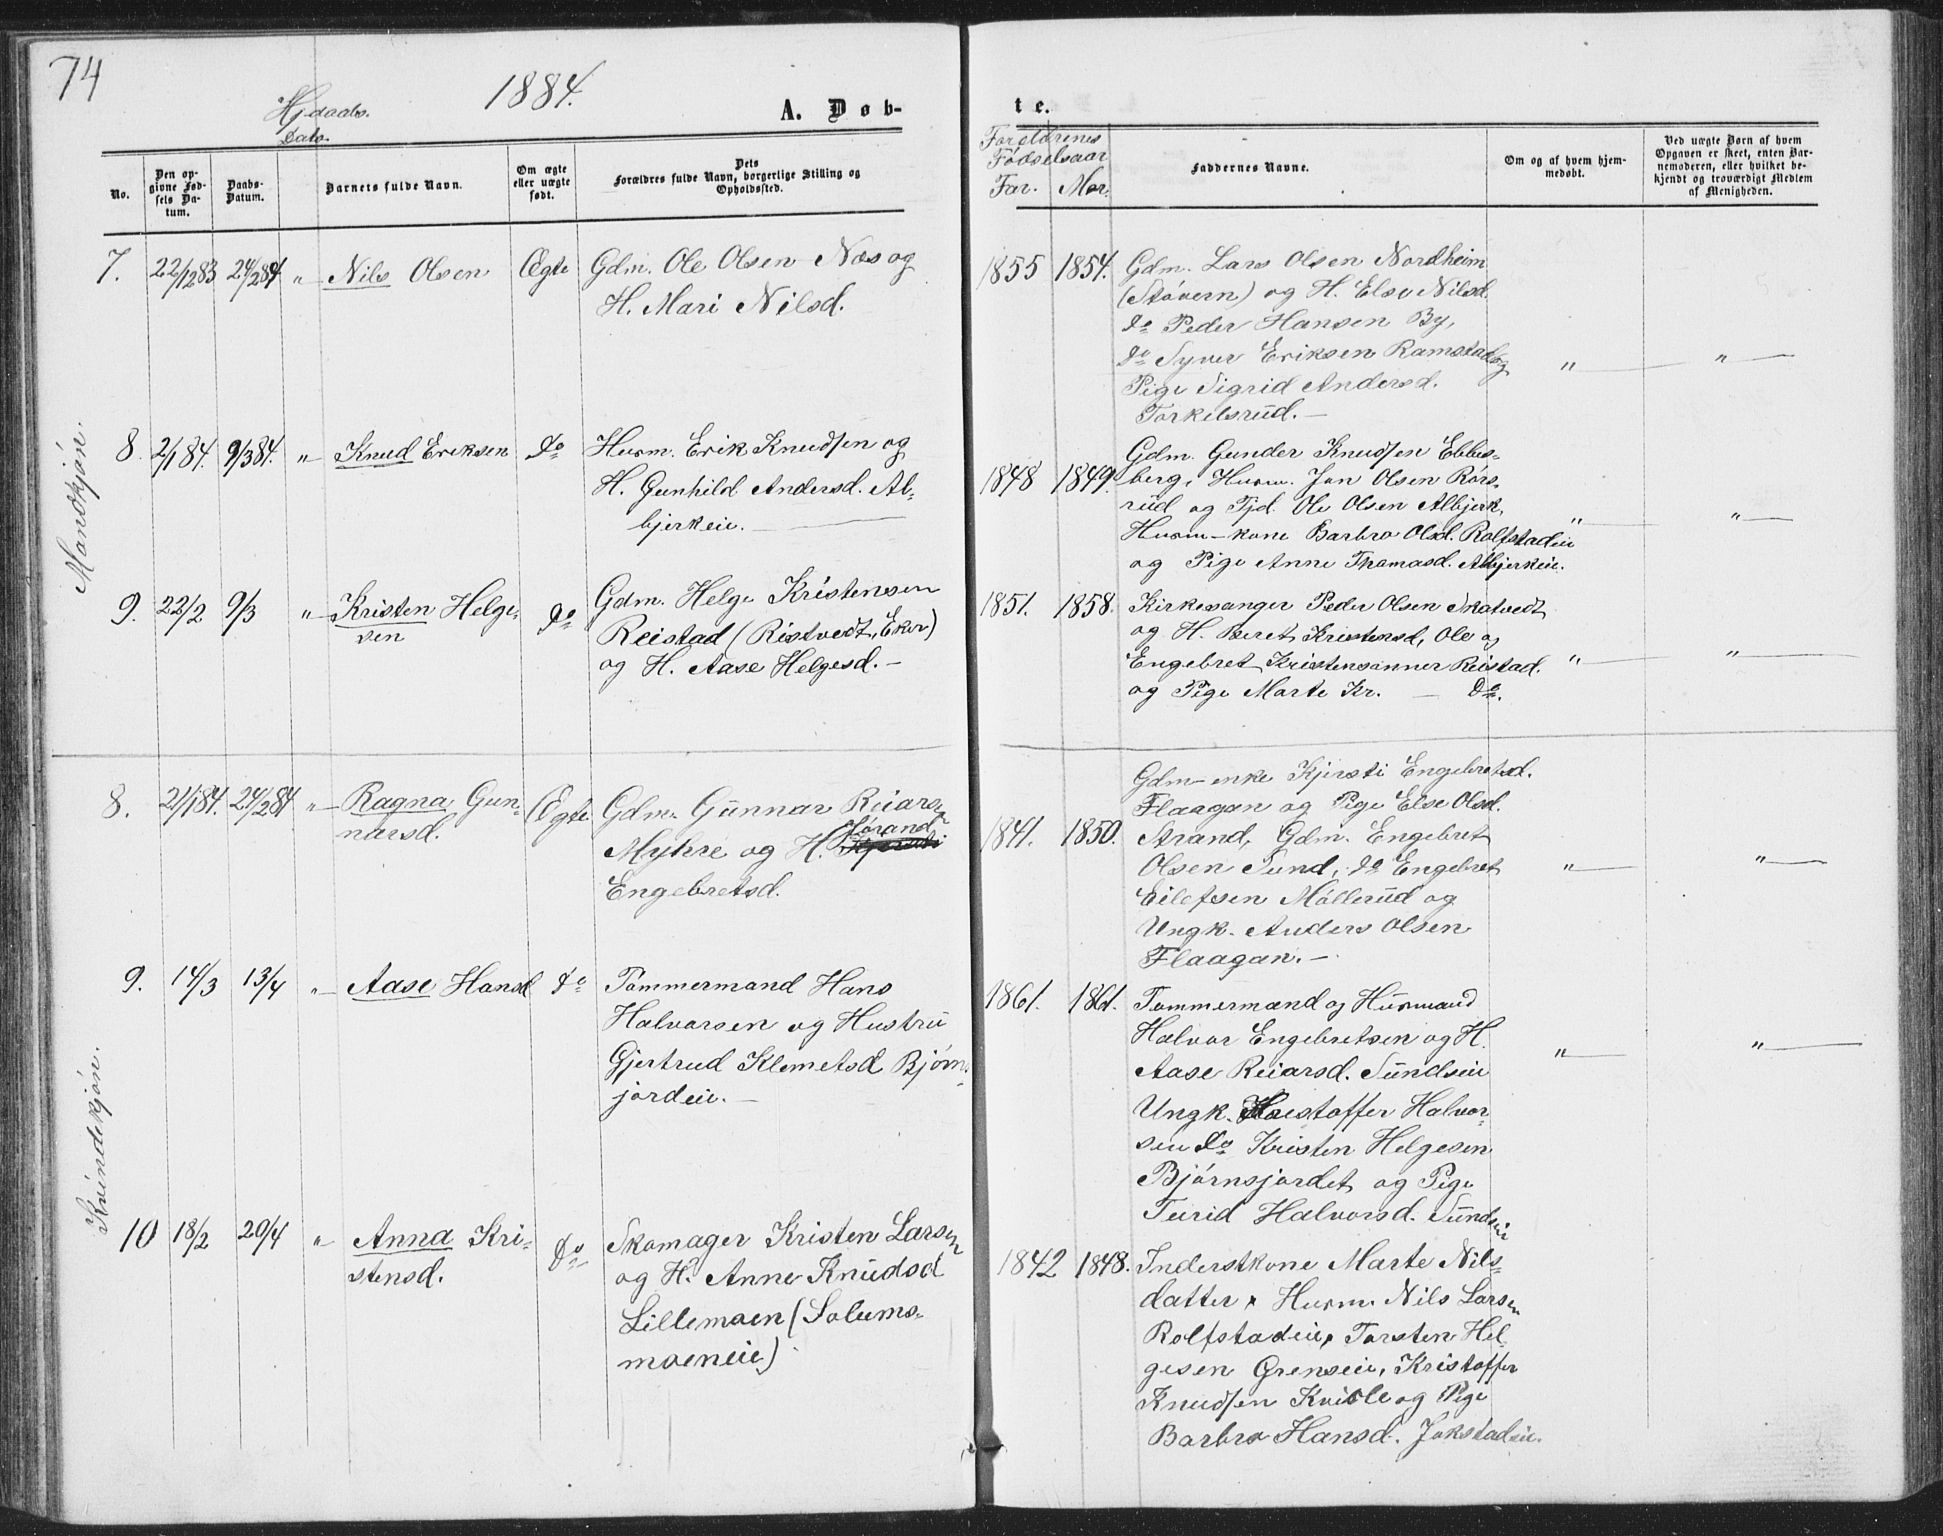 74
1884.
Hjdaabs.
Dato.
A. Døb-
te.
No.
Den op-
givne Fød-
sels Da-
tum.
Daabs-
Datum.
Barnets fulde Navn.
Om ægte
eller uægte
født.
Dets
Forældres fulde Navn, borgerlige Stilling og
Opholdssted.
Forældrenes
Fødselsaar
Far. Mor.
Faddernes Navne.
Om og af hvem hjem-
medøbt.
Ved uægte Børn af hvem
Opgaven er skeet, enten Bar-
nemoderen, eller hvilket be-
kjendt og troværdigt Medlem
af Menigheden.
Mandkjøn.
7. 22/12 83 24/2 84 " Nils Olsen Ægte Gdm. Ole Olsen Næs og
H. Mari Nilsd.
1855 1854. Gdm. Lars Olsen Nordheim
(Støvern) og H. Else Nilsd.
do Peder Hansen By,
do Syver Eriksen Ramstad og " "
Pige Sigrid Andersd.
Torkelsrud.
8. 2/1 84. 9/3 84. " Knud Eriksen do Husm. Erik Knudsen og
H. Gunhild Andersd. Al-
bjerkeie.
1848 1849. Gdm. Gunder Knudsen Ebbes-
berg, Husm. Jon Olsen Rørs-
rud og Tjd. Ole Olsen Albjerk,
Husm-kone Barbro Olsd. Rolfstadeie " "
og Pige Anne Thomasd. Albjerkeie.
9. 22/2 9/3 " Kristen Helge-
sen do Gdm. Helge Kristensen
Reistad (Ristvedt, Eker)
og H. Aase Helgesd.
1851. 1858. Kirkesanger Peder Olsen Skatvedt
og H. Beret Kristensd, Ole og
Engebret Kristensønner Reistad. " "
og Pige Marte Kr. — do.
Kvindekjøn.
8. 21/1 84. 24/2 84 " Ragna Gun-
narsd. Ægte Gdm. Gunnar Reiarsen
Myhre og H. Jørand
Engebretsd.
1841. 1850. Gdm-enke Kjersti Engebretsd.
Flaagan og Pige Else Olsd.
Strand, Gdm. Engebret
Olsen Sund, do Engebret " "
Eilefsen Møllerud og
Ungk. Anders Olsen
Flaagan.
9. 14/3 13/4 " Aase Hansd do Tømmermand Hans
Halvorsen og Hustru
Gjertrud Klemetsd Bjørns-
jordeie.
1861. 1861. Tømmermand og Husmand
Halvor Engebretsen og H.
Aase Reiarsd. Sundseie " "
Ungk. Kristoffer Halvor-
sen do Kristen Helgesen
Bjørnsjordet og Pige
Turid Halvorsd. Sundseie
10 18/2 20/4 " Anna Kri-
stensd. do Skomager Kristen Larsen
og H. Anne Knudsd
Lillemoen (Solums-
moeneie)
1842 1848. Inderstkone Marte Nils-
datter, Husm. Nils Larsen
Rolfstadeie, Torsten Hel-
gesen Grenseie, Kristoffer
Knudsen Kvisle og Pige
Barbro Hansd. Jokstadeie.